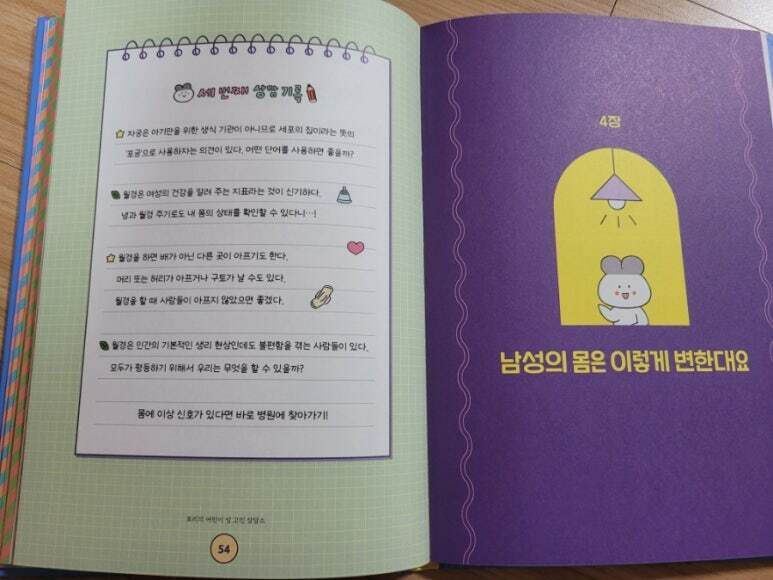 세 번째 상담 기록
자궁은 아기만을 위한 생식 기관이 아니므로 세포의 집이라는 뜻의
'포궁'으로 사용하자는 의견이 있다. 어떤 단어를 사용하면 좋을까?
월경은 여성의 건강을 알려 주는 지표라는 것이 신기하다.
냉과 월경 주기로도 내 몸의 상태를 확인할 수 있다니…!
월경을 하면 배가 아닌 다른 곳이 아프기도 한다.
머리 또는 허리가 아프거나 구토가 날 수도 있다.
월경을 할 때 사람들이 아프지 않았으면 좋겠다.
월경은 인간의 기본적인 생리 현상인데도 불편함을 겪는 사람들이 있다.
모두가 평등하기 위해서 우리는 무엇을 할 수 있을까?
몸에 이상 신호가 있다면 바로 병원에 찾아가기!
포리의 어린이 성 고민 상담소
54
4장
남성의 몸은 이렇게 변한대요